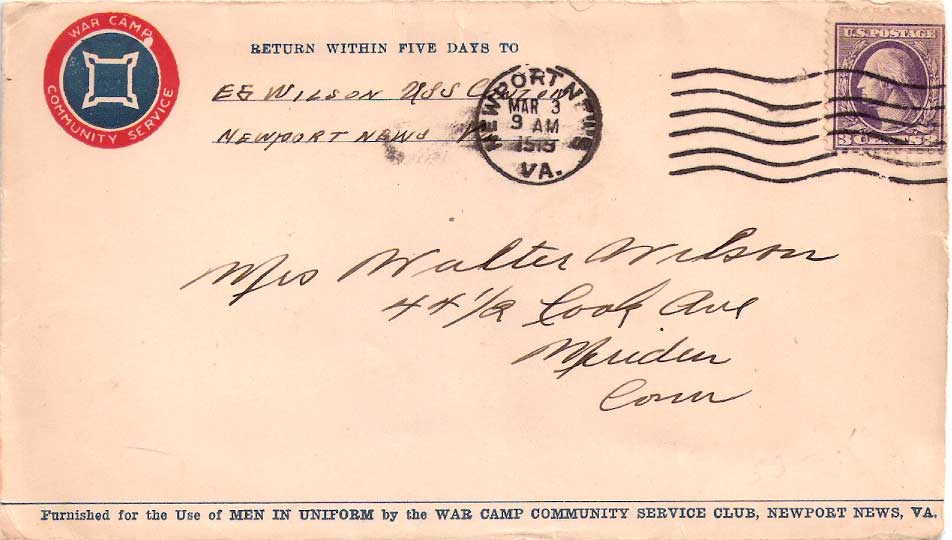 WAR CAMP
COMMUNITY SERVICE
RETURN WITHIN FIVE DAYS TO
EG WILSON USS CANTON
NEWPORT NEWS VA
NEWPORT NEWS
MAR 3
9 AM
1919
VA.
U.S. POSTAGE
3 CENTS 3
Mrs Walter Wilson
44 1/2 Cook Ave
Meriden
Conn
Furnished for the Use of MEN IN UNIFORM by the WAR CAMP COMMUNITY SERVICE CLUB, NEWPORT NEWS, VA.